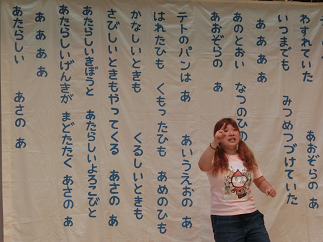 わすれていた
いつまでも　みつめつづけていた
あおぞらの　あ
あ　あ　あ　あ
あのとおい　なつのひの
あおぞらの　あ
テトのパンは　あ　あいうえおの　あ
はれたひも　くもったひも　あめのひも
かなしいときも　くるしいときも
さびしいときもやってくる　あさの　あ
あたらしいきぼうと　あたらしいよろこびと
あたらしいげんきが　まどたたく　あさの　あ
あ　あ　あ　あ
あたらしい　あさの　あ